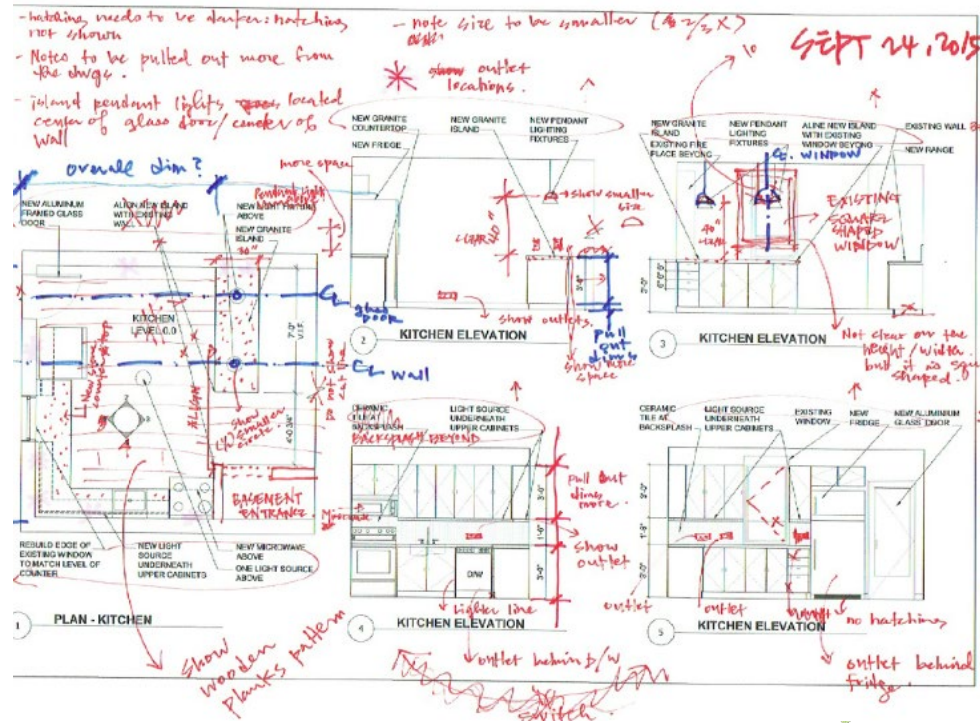 - hatching needs to be darker: hatching
not shown
- Notes to be pulled out more from
the dwgs.
- island pendant lights located
center of glass door/ center of
wall
- note size to be smaller ( 2/3 X)
show outlet
locations.
SEPT 24, 2015
overall dim?
more space
NEW ALUMINUM
FRAMED GLASS
DOOR
ALIGN NEW ISLAND
WITH EXISTING
WALL
NEW LIGHT FIXTURE
ABOVE
NEW GRANITE
ISLAND
30"
KITCHEN
LEVEL 0.0
7'-0"
V.I.F.
4'-0 3/4"
ALIGN
New stone
countertop
CL glass
door
CL wall
do not show
cut line
show
smaller
circle
BASEMENT
ENTRANCE
Microwave
REBUILD EDGE OF
EXISTING WINDOW
TO MATCH LEVEL OF
COUNTER
NEW LIGHT
SOURCE
UNDERNEATH
UPPER CABINETS
NEW MICROWAVE
ABOVE
ONE LIGHT SOURCE
ABOVE
1
PLAN - KITCHEN
show
wooden
planks pattern
NEW GRANITE
COUNTERTOP
NEW FRIDGE
NEW GRANITE
ISLAND
NEW PENDANT
LIGHTING
FIXTURES
show smaller
size
CLEAR 40"
3'-0"
show outlets.
pull
out
dims
show more
space
2
KITCHEN ELEVATION
NEW GRANITE
ISLAND
EXISTING FIRE
PLACE BEYONG
NEW PENDANT
LIGHTING
FIXTURES
ALINE NEW ISLAND
WITH EXISTING
WINDOW BEYONG
EXISTING WALL
NEW RANGE
CL. WINDOW
EXISTING
SQUARE
SHAPED
WINDOW
40"
CLEAR
3'-0"
Not clear on the
height / width
but it is squ
shaped.
3
KITCHEN ELEVATION
CERAMIC
TILE AT
BACKSPLASH
BACKSPLASH BEYOND
LIGHT SOURCE
UNDERNEATH
UPPER CABINETS
3'-0"
1'-6"
3'-0"
pull out
dims
more.
show
outlet
D/W
Lighter line
outlet behind D/W
switch.
4
KITCHEN ELEVATION
CERAMIC
TILE AT
BACKSPLASH
LIGHT SOURCE
UNDERNEATH
UPPER CABINETS
EXISTING
WINDOW
NEW
FRIDGE
NEW ALUMINIUM
GLASS DOOR
3'-0"
1'-6"
3'-0"
outlet
outlet
outlet
no hatching
outlet behind
fridge.
5
KITCHEN ELEVATION